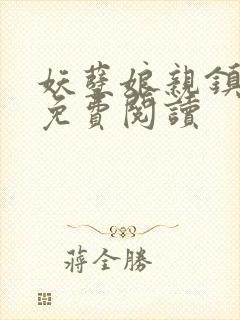 妖孽娘親鎮
免費閱讀
蔣全勝